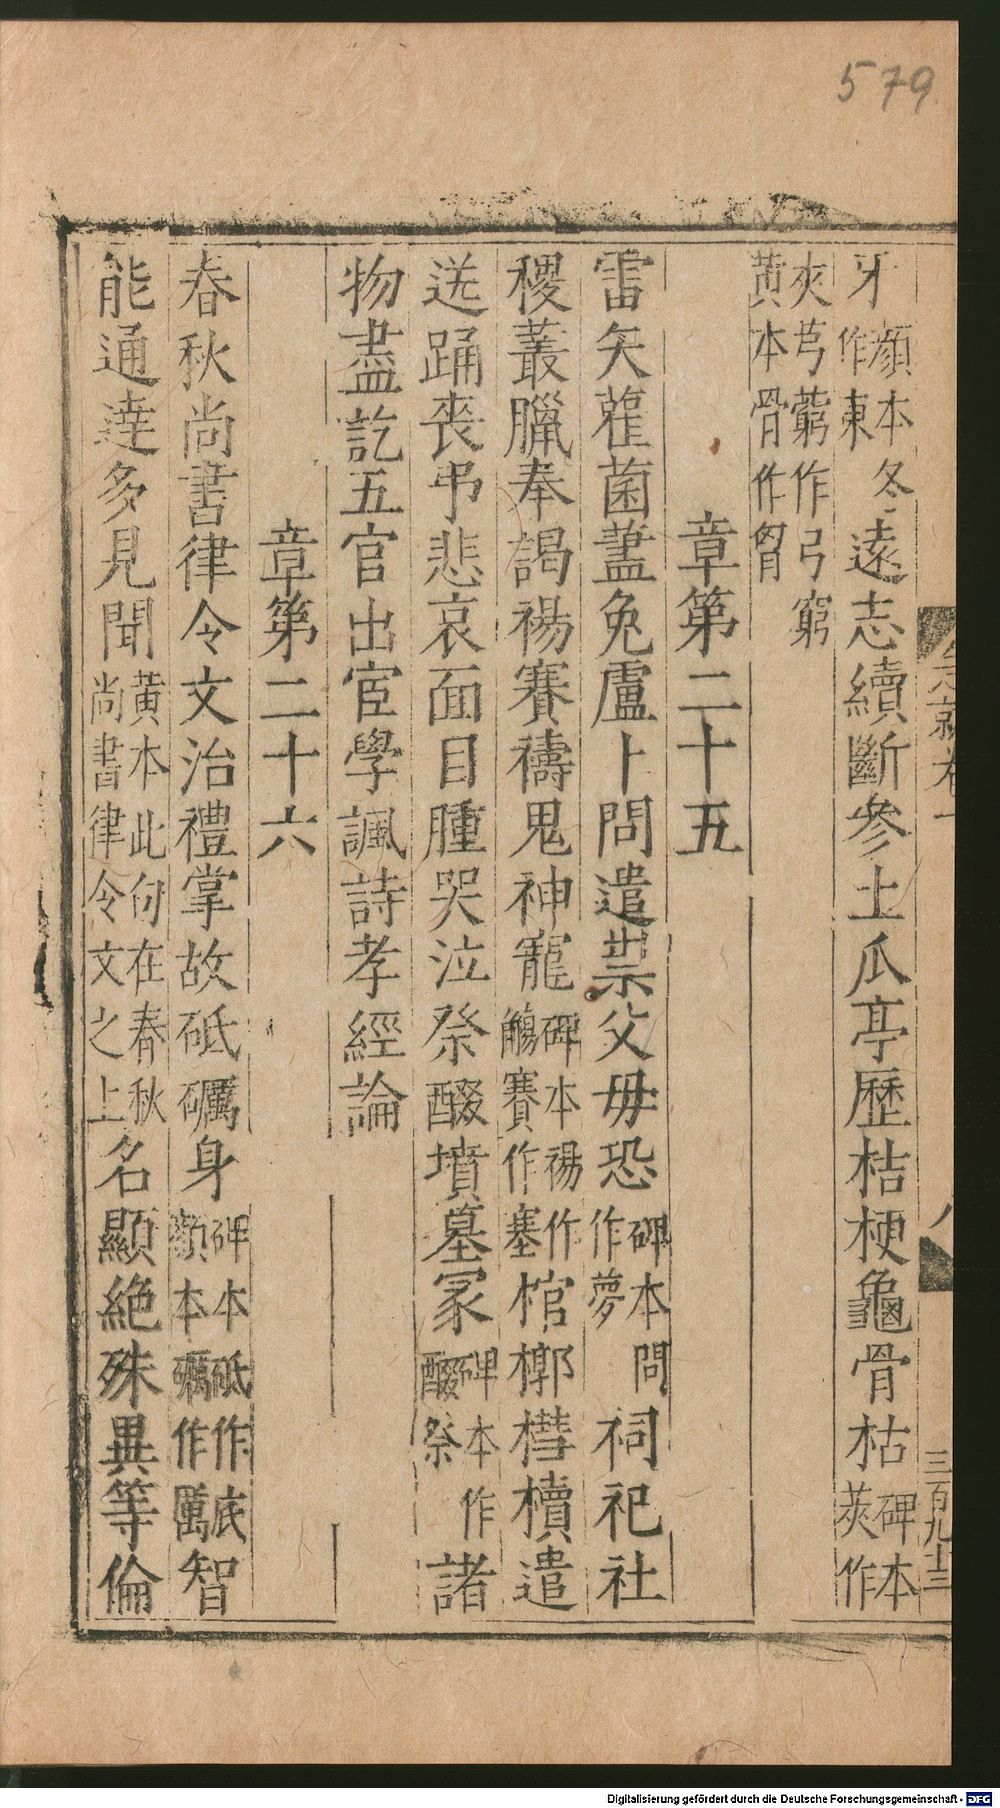 579
牙顔本冬作東遠志續斷參土瓜亭歷桔梗龜骨枯碑本莢作
夾芎藭作弓窮黃本骨作胷
章第二十五
雷矢雚菌藎兔盧卜問遣祟父母恐碑本問作夢祠祀社
稷叢臘奉謁禓賽禱鬼神寵碑本禓作觴賽作塞棺槨槥櫝遣
送踊喪弔悲哀面目腫哭泣祭醊墳墓冢碑本作醊祭諸
物盡訖五官出宦學諷詩孝經論
章第二十六
春秋尚書律令文治禮掌故砥礪身碑本砥作底顔本礪作厲智
能通達多見聞黃本此句在春秋尚書律令文之上名顯絕殊異等倫
急就卷一
八
三百九十三
Digitalisierung gefördert durch die Deutsche Forschungsgemeinschaft - DFG